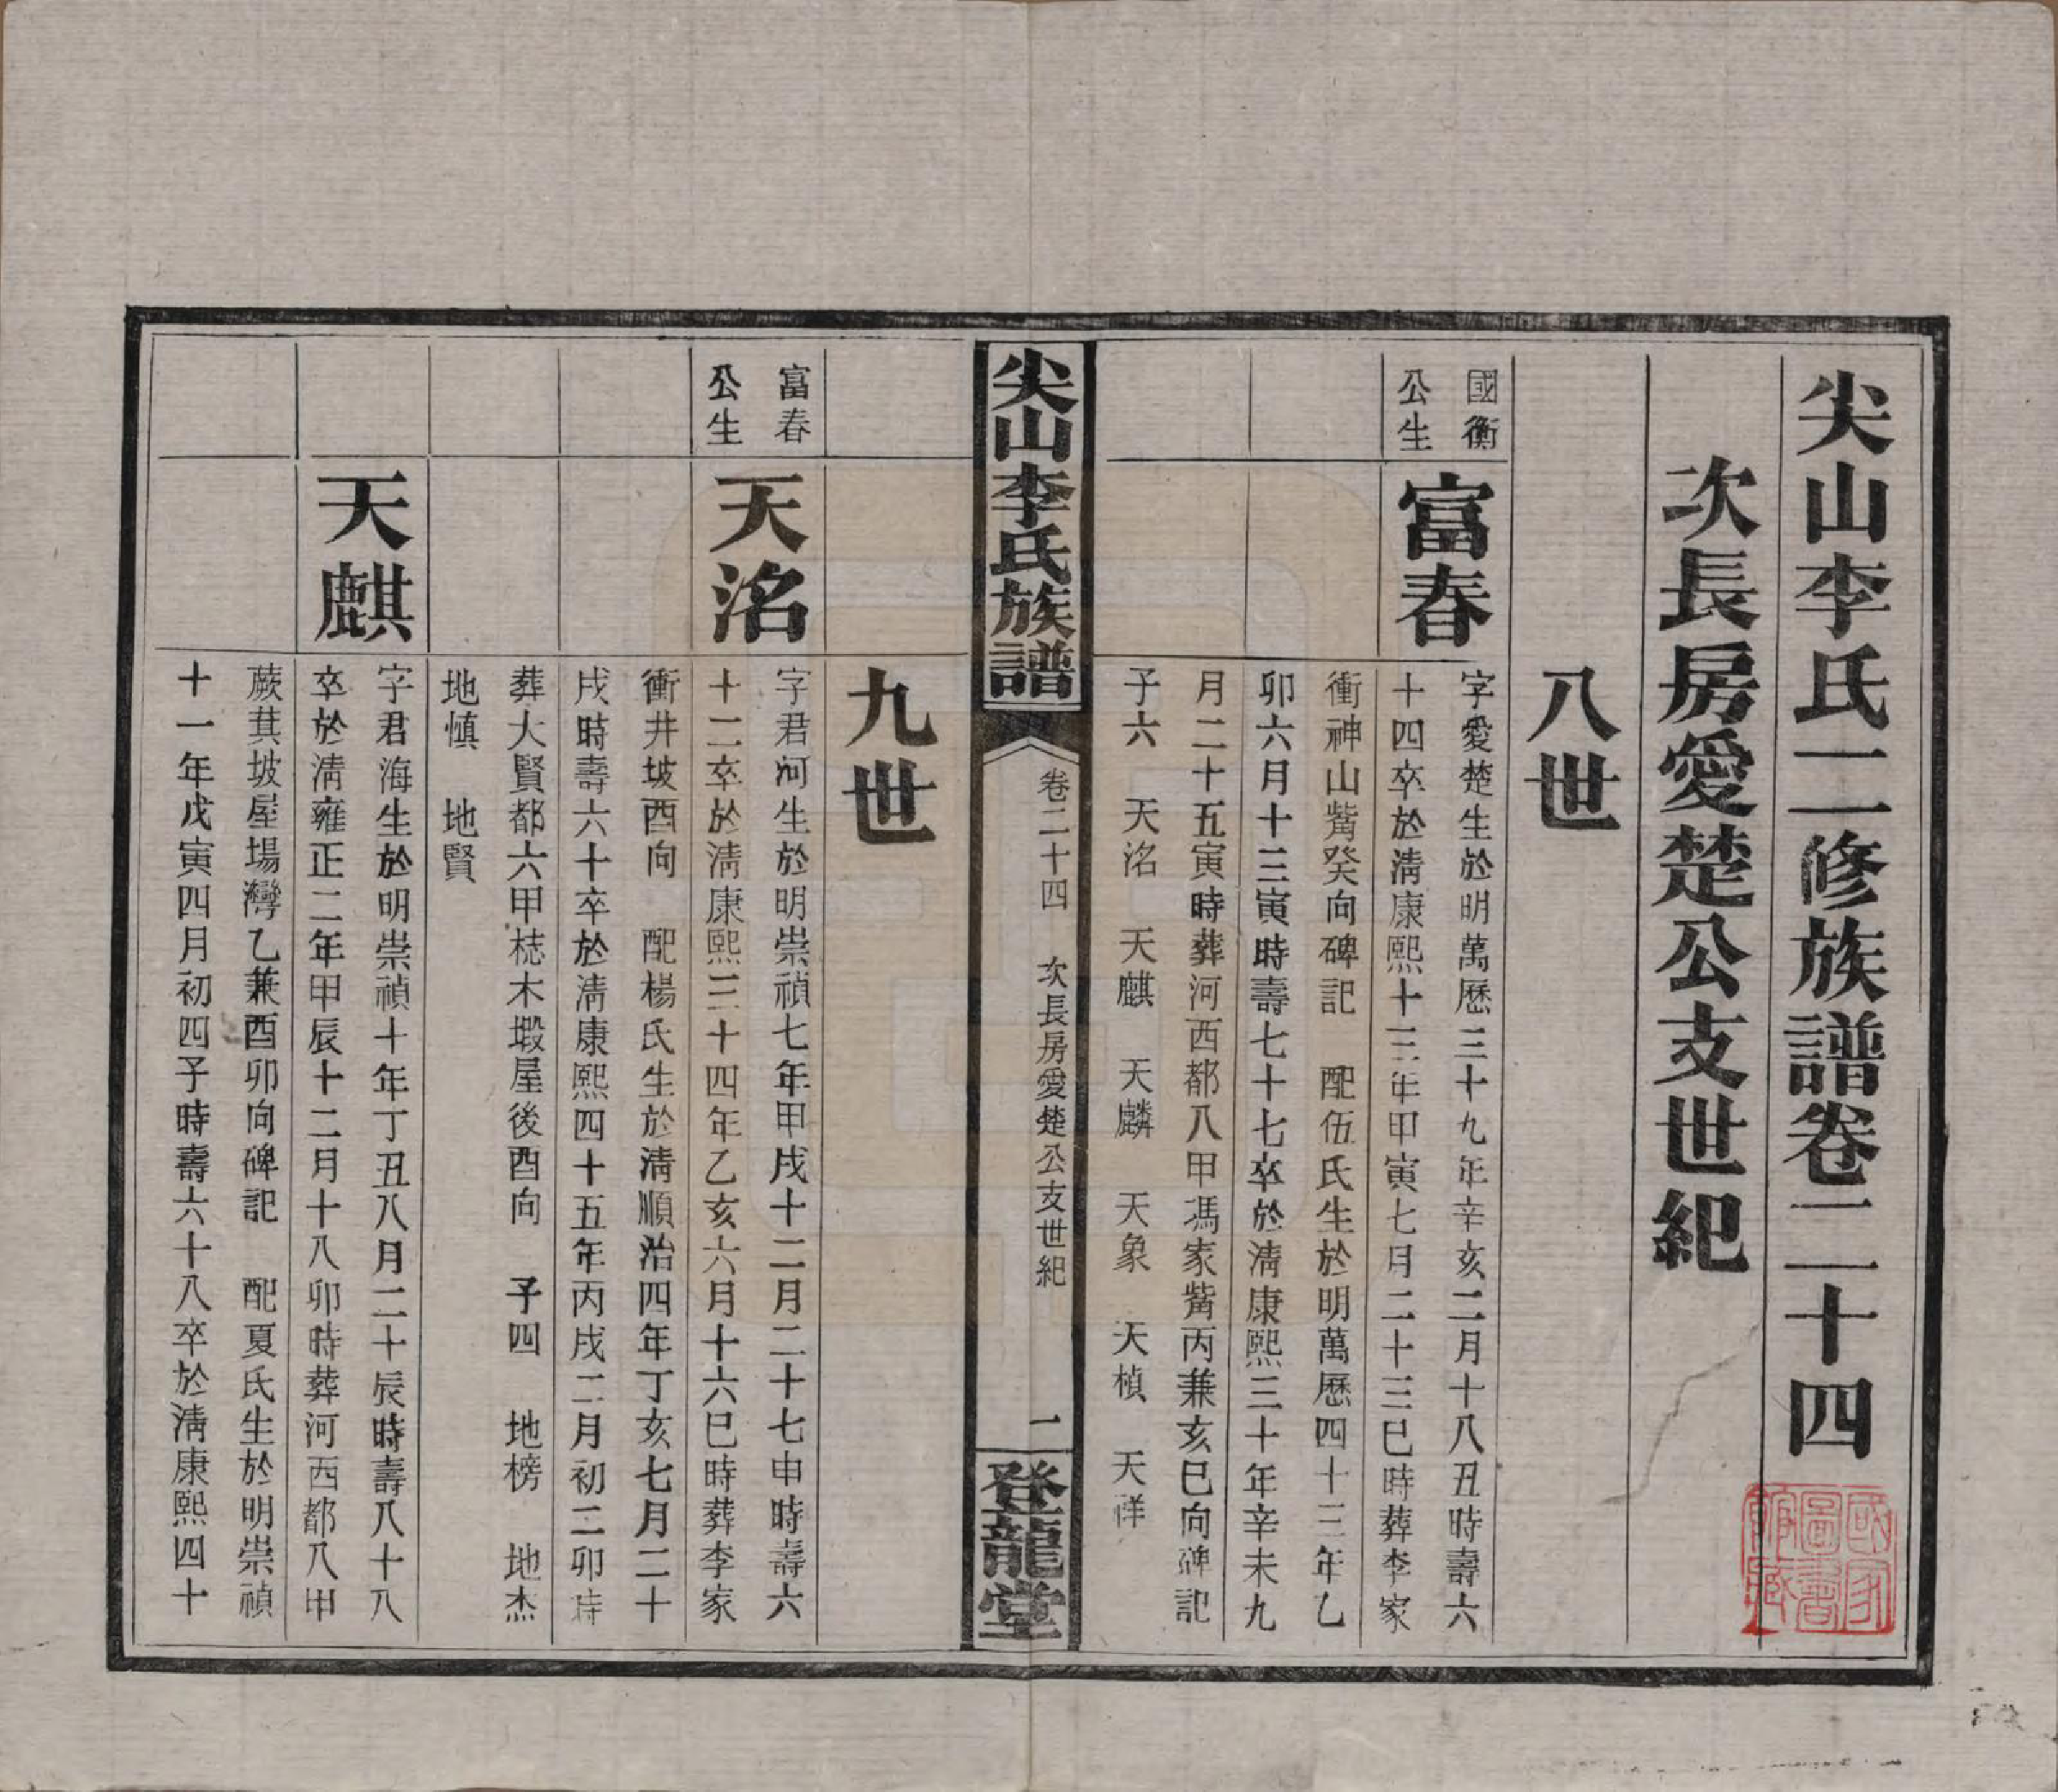 尖山李氏二修族譜卷二十四
次長房愛楚公支世紀
八世
國衡
公生
富春
字愛楚生於明萬歷三十九年辛亥二月十八丑時壽六
十四卒於清康熙十三年甲寅七月二十三巳時葬李家
衝神山觜癸向碑記　配伍氏生於明萬歷四十三年乙
卯六月十三寅時壽七十七卒於清康熙三十年辛未九
月二十五寅時葬河西都八甲馮家觜丙兼亥巳向碑記
子六　天洺　天麒　天麟　天象　天楨　天祥
尖山李氏族譜
卷二十四　次長房愛楚公支世紀
一
登龍堂
九世
富春
公生
天洺
字君河生於明崇禎七年甲戌十二月二十七申時壽六
十二卒於清康熙三十四年乙亥六月十六巳時葬李家
衝井坡酉向　配楊氏生於清順治四年丁亥七月二十
戌時壽六十卒於清康熙四十五年丙戌二月初二卯時
葬大賢都六甲梽木塅屋後酉向　子四　地榜　地杰
地慎　地賢
天麒
字君海生於明崇禎十年丁丑八月二十辰時壽八十八
卒於清雍正二年甲辰十二月十八卯時葬河西都八甲
蕨萁坡屋場灣乙兼酉卯向碑記　配夏氏生於明崇禎
十一年戊寅四月初四子時壽六十八卒於清康熙四十
國家
圖書
館藏